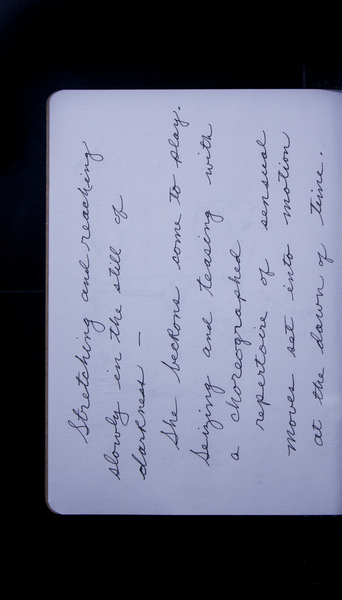 Stretching and reaching
slowly in the still of
darkness —
She beckons come to play.
Seizing and teasing with
a choreographed
repertoire of sensual
moves set into motion
at the dawn of time.